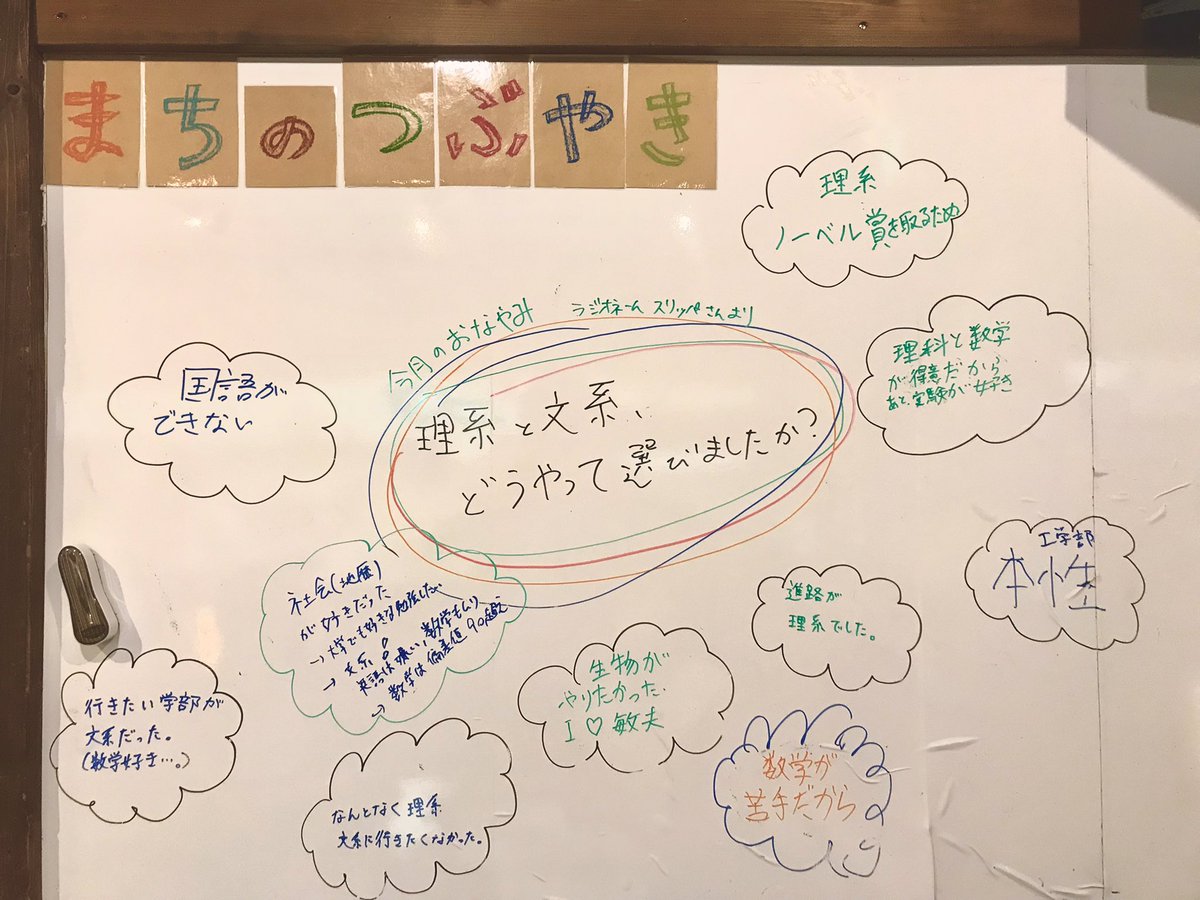 まちのつぶやき
理系
ノーベル賞を取るため
今月のおなやみ
ラジオネーム スリッパさんより
理系と文系、
どうやって選びましたか?
理科と数学
が得意だから
あと、実験が好き
国語が
できない
工学部
本性
社会(地歴)
が好きだった
→大学でも好きな勉強したい
→文系。
英語は嫌い、数学もムリ
→数学は偏差値90越え
進路が
理系でした。
生物が
やりたかった。
I ♡ 敏夫
行きたい学部が
文系だった。
(数学好き…。)
なんとなく理系
文系に行きたくなかった。
数学が
苦手だから